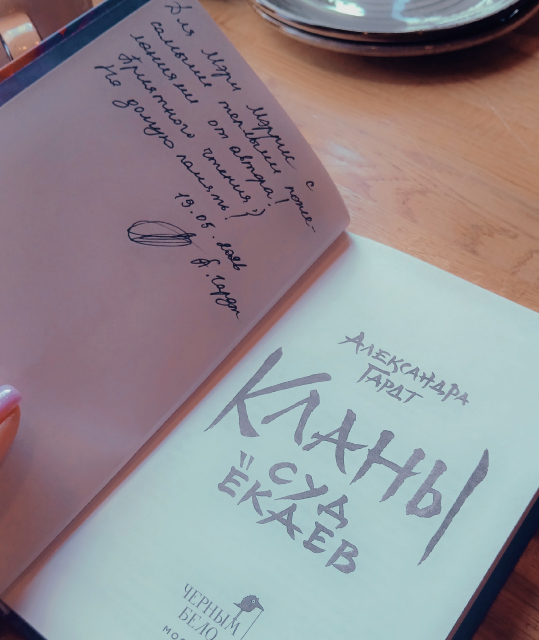 Для Мэри Моррис с
самыми теплыми поже-
ланиями от автора!
Приятного чтения)
На долгую память!
19.05.2026
А. Гардт
АЛЕКСАНДРА
ГАРДТ
КЛАНЫ
СУД
ЁКАЕВ
ЧЕРНЫМ
БЕЛО
МОС